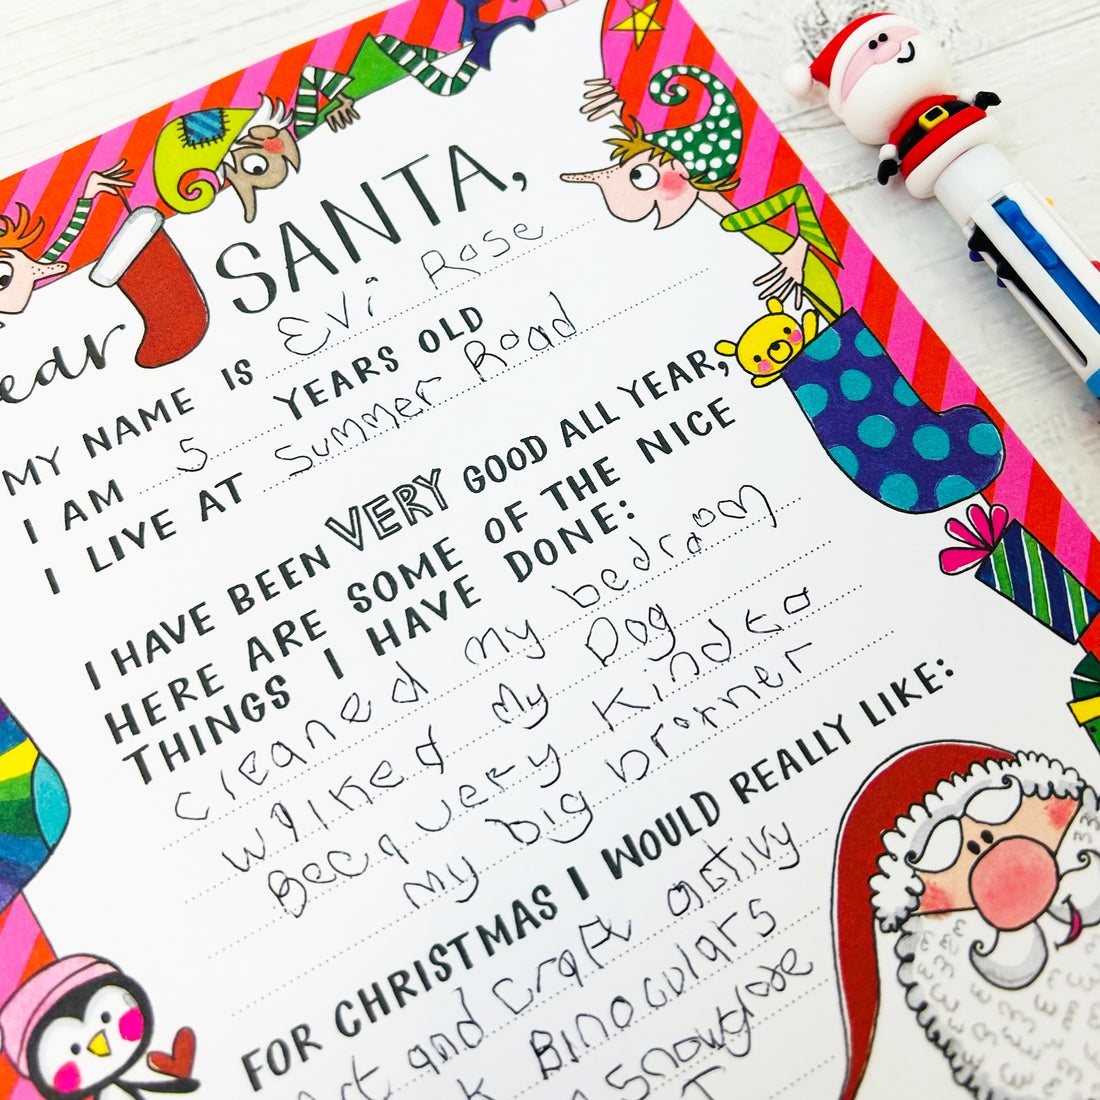 ear
SANTA,
MY NAME IS Evi Rose
I AM 5 YEARS OLD
I LIVE AT Summer Road
I HAVE BEEN VERY GOOD ALL YEAR,
HERE ARE SOME OF THE NICE
THINGS I HAVE DONE:
cleaned my bedroom
walked my Dog
very kind to
my big
FOR CHRISTMAS I WOULD REALLY LIKE:
Art and craft activy
k Binoculars
snowglobe